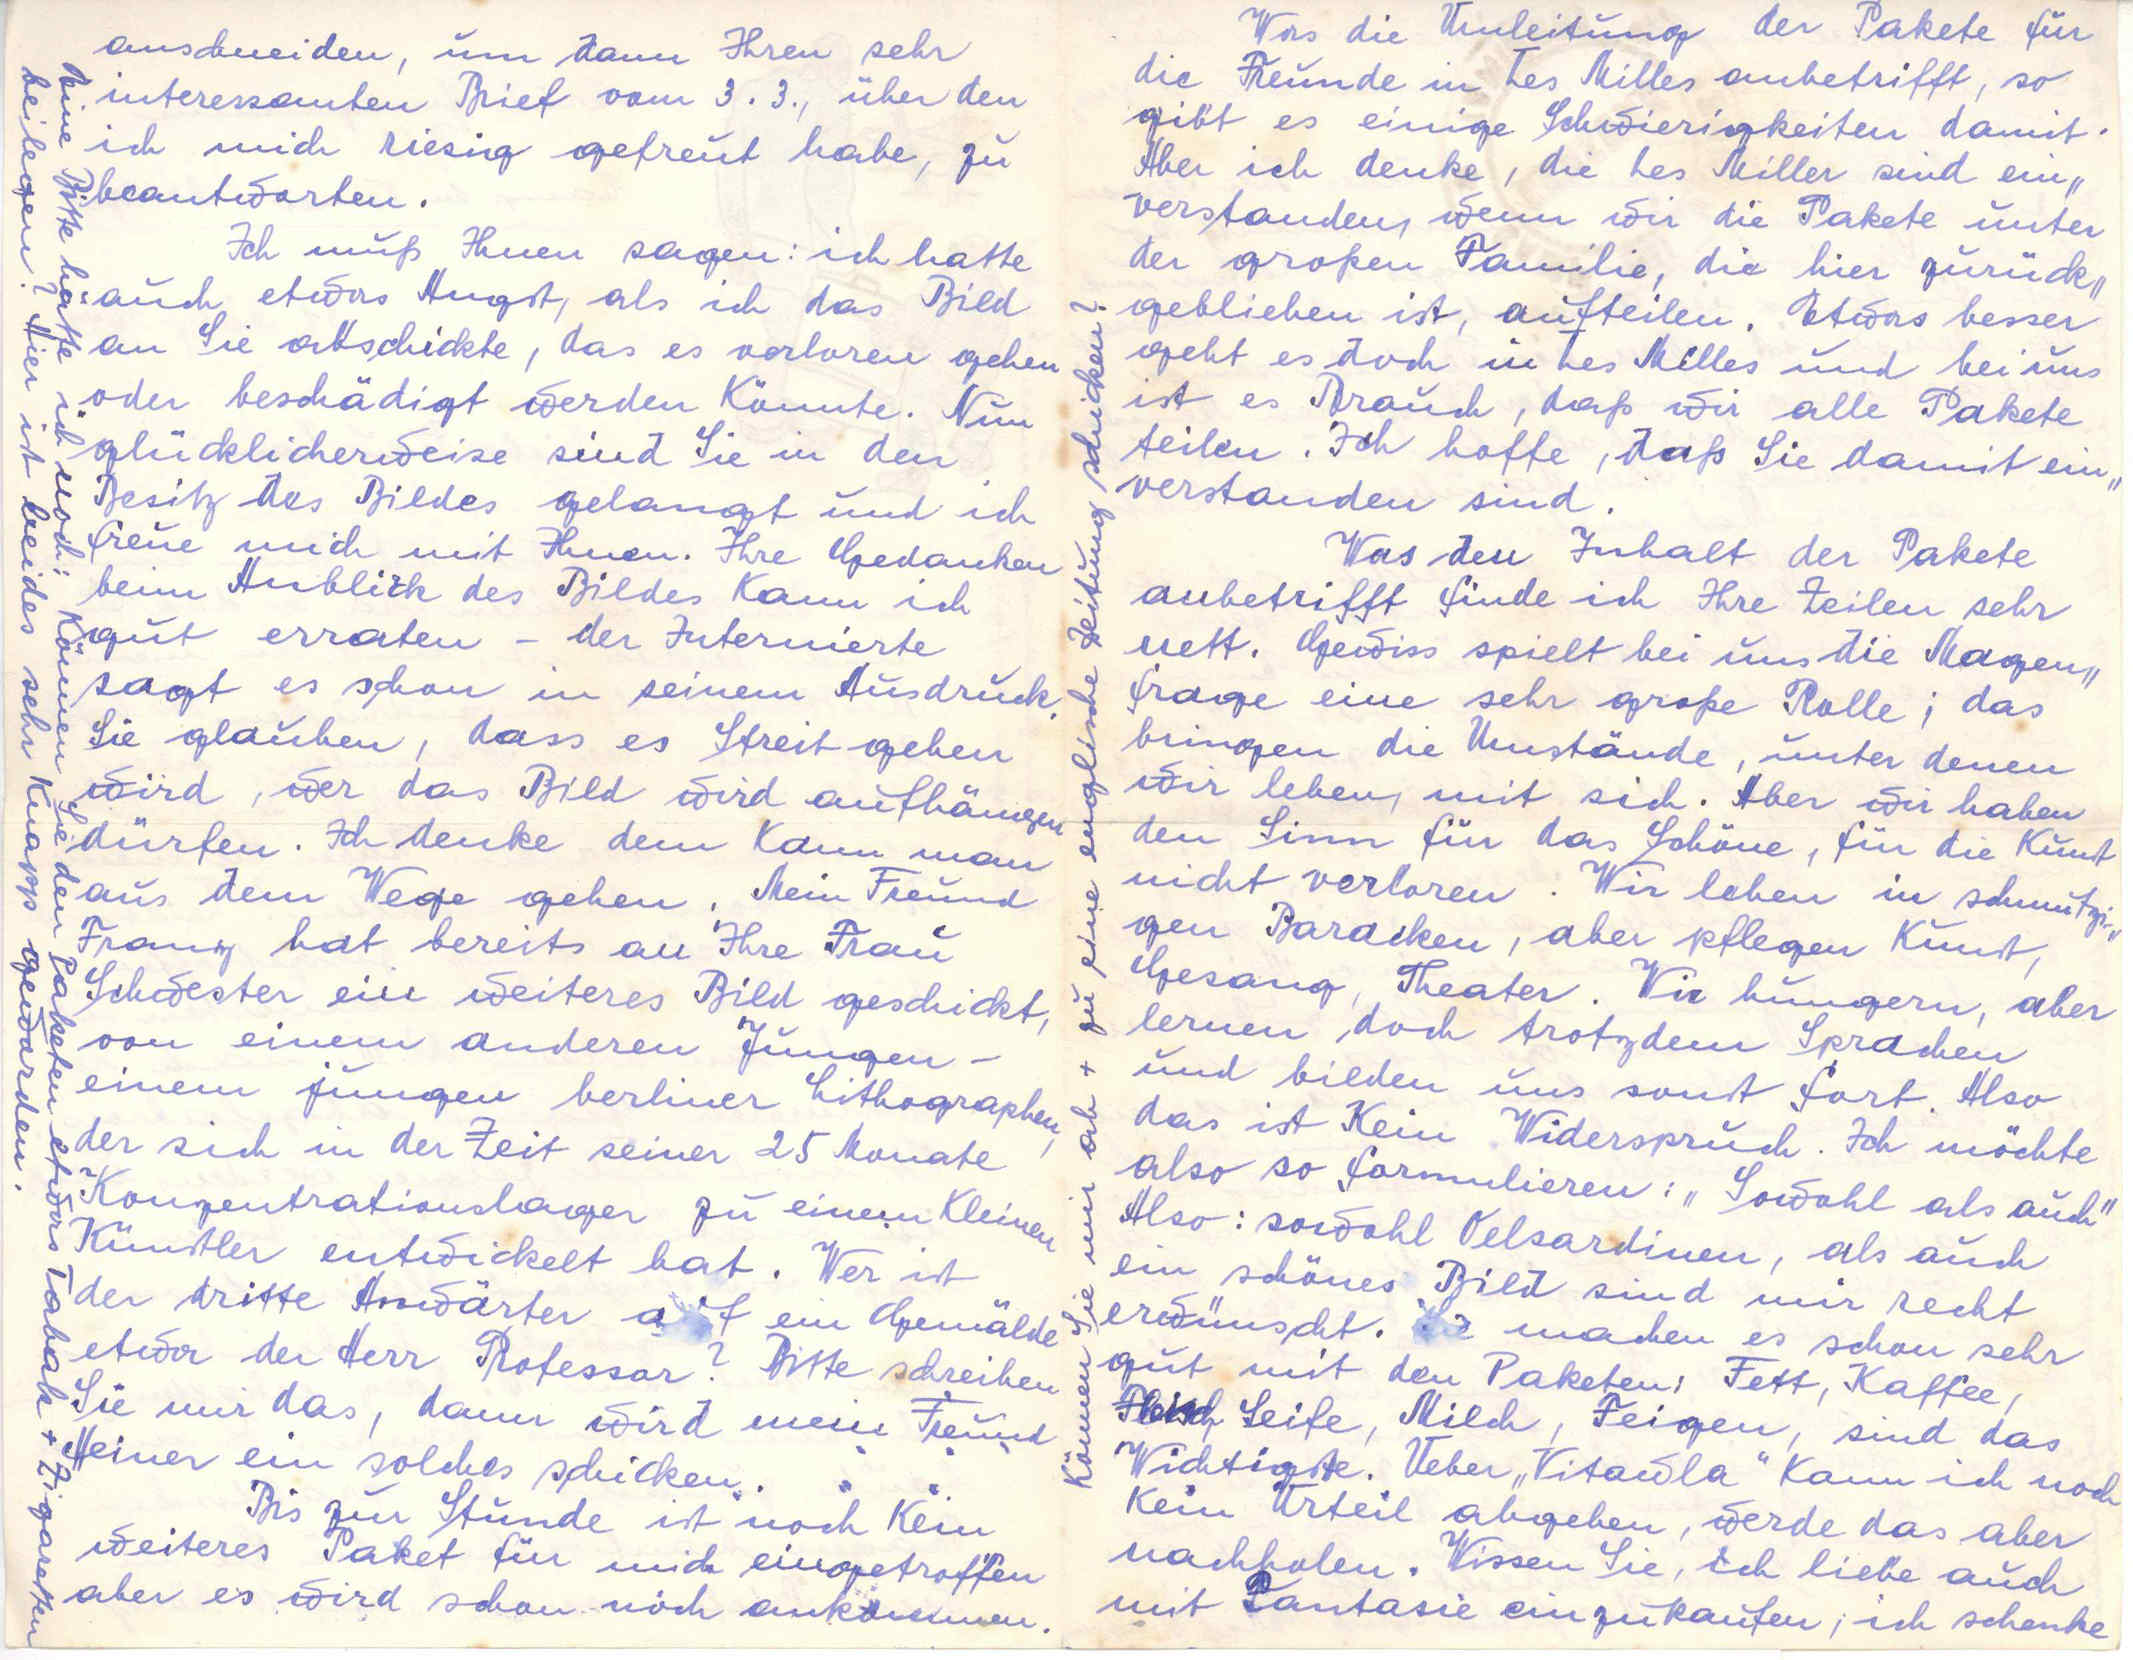 anschneiden, um dann Ihren sehr
interessanten Brief vom 3.3., über den
ich mich riesig gefreut habe, zu
beantworten.
Ich muß Ihnen sagen: ich hatte
auch etwas Angst, als ich das Bild
an Sie abschickte, das es verloren gehen
oder beschädigt werden könnte. Nun
glücklicherweise sind Sie in den
Besitz des Bildes gelangt und ich
freue mich mit Ihnen. Ihre Gedanken
beim Anblick des Bildes kann ich
gut erraten – der Internierte
sagt es schon in seinem Ausdruck.
Sie glauben, dass es Streit geben
wird, wer das Bild wird aufhängen
dürfen. Ich denke dem kann man
aus dem Wege gehen. Mein Freund
Franz hat bereits an Ihre Frau
Schwester ein weiteres Bild geschickt,
von einem anderen Jungen –
einem jungen berliner Lithographen,
der sich in der Zeit seiner 25 Monate
Konzentrationslager zu einem kleinen
Künstler entwickelt hat. Wer ist
der dritte Anwärter auf ein Gemälde
etwa der Herr Professor? Bitte schreiben
Sie mir das, dann wird mein Freund
Heiner ein solches schicken.
Bis zur Stunde ist noch kein
weiteres Paket für mich eingetroffen
aber es wird schon noch ankommen.
Eine Bitte hätte ich noch: Können Sie den Paketen etwas Tabak + Zigaretten
beilegen? Hier ist beides sehr knapp geworden.
Können Sie mir ab + zu eine englische Zeitung schicken?
Was die Umleitung der Pakete für
die Freunde in Les Milles anbetrifft, so
gibt es einige Schwierigkeiten damit.
Aber ich denke, die Les Miller sind ein„
verstanden, wenn wir die Pakete unter
der großen Familie, die hier zurück„
geblieben ist, aufteilen. Etwas besser
geht es doch in Les Milles und bei uns
ist es Brauch, daß wir alle Pakete
teilen. Ich hoffe, daß Sie damit ein„
verstanden sind.
Was den Inhalt der Pakete
anbetrifft finde ich Ihre Zeilen sehr
nett. Gewiss spielt bei uns die Magen„
frage eine sehr große Rolle; das
bringen die Umstände, unter denen
wir leben, mit sich. Aber wir haben
den Sinn für das Schöne, für die Kunst
nicht verloren. Wir leben in schmutzi„
gen Baracken, aber pflegen Kunst,
Gesang, Theater. Wir hungern, aber
lernen doch trotzdem Sprachen
und bilden uns sonst fort. Also
das ist kein Widerspruch. Ich möchte
also so formulieren: „Sowohl als auch"
Also: sowohl Oelsardinen, als auch
ein schönes Bild sind mir recht
erwünscht. machen es schon sehr
gut mit den Paketen: Fett, Kaffee,
Seife, Milch, Feigen, sind das
Wichtigste. Ueber „Vitawla" kann ich noch
kein Urteil abgeben, werde das aber
nachholen. Wissen Sie, ich liebe auch
mit Fantasie einzukaufen; ich schenke